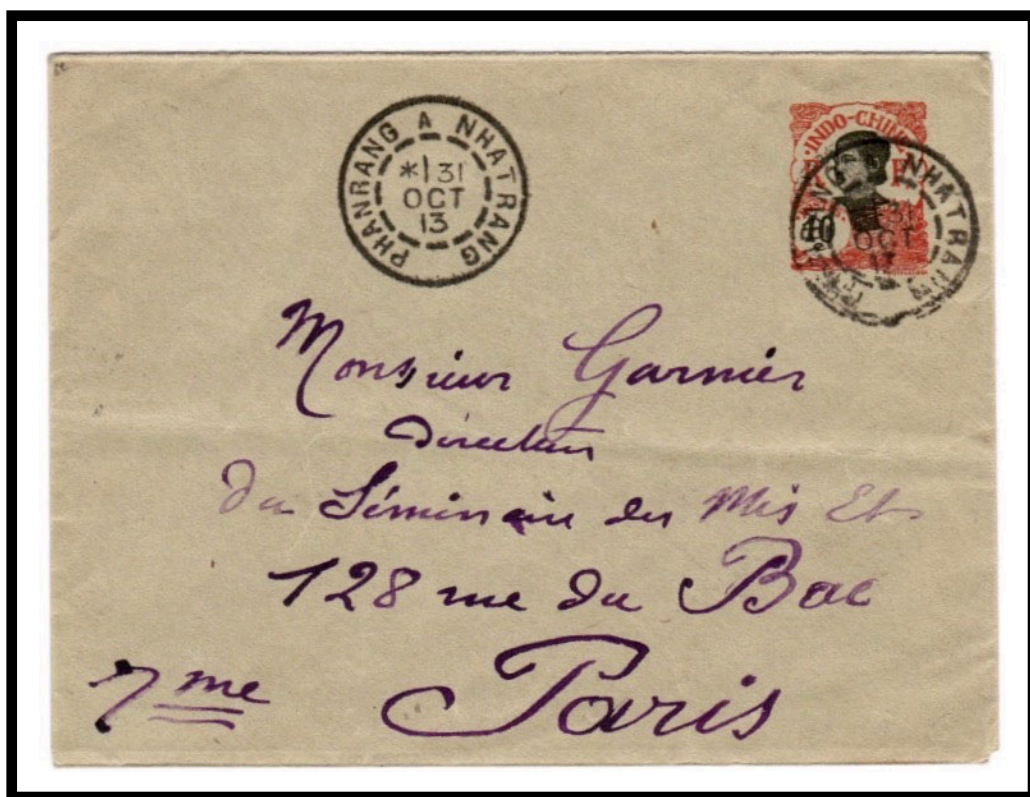 PHANRANG A NHATRANG
*1 31
OCT
13
INDO-CHINE
R F
10
NHATRANG
31
OCT
13
Monsieur Garnier
Directeur
du Séminaire des Mis Et.
128 rue du Bac
7me Paris